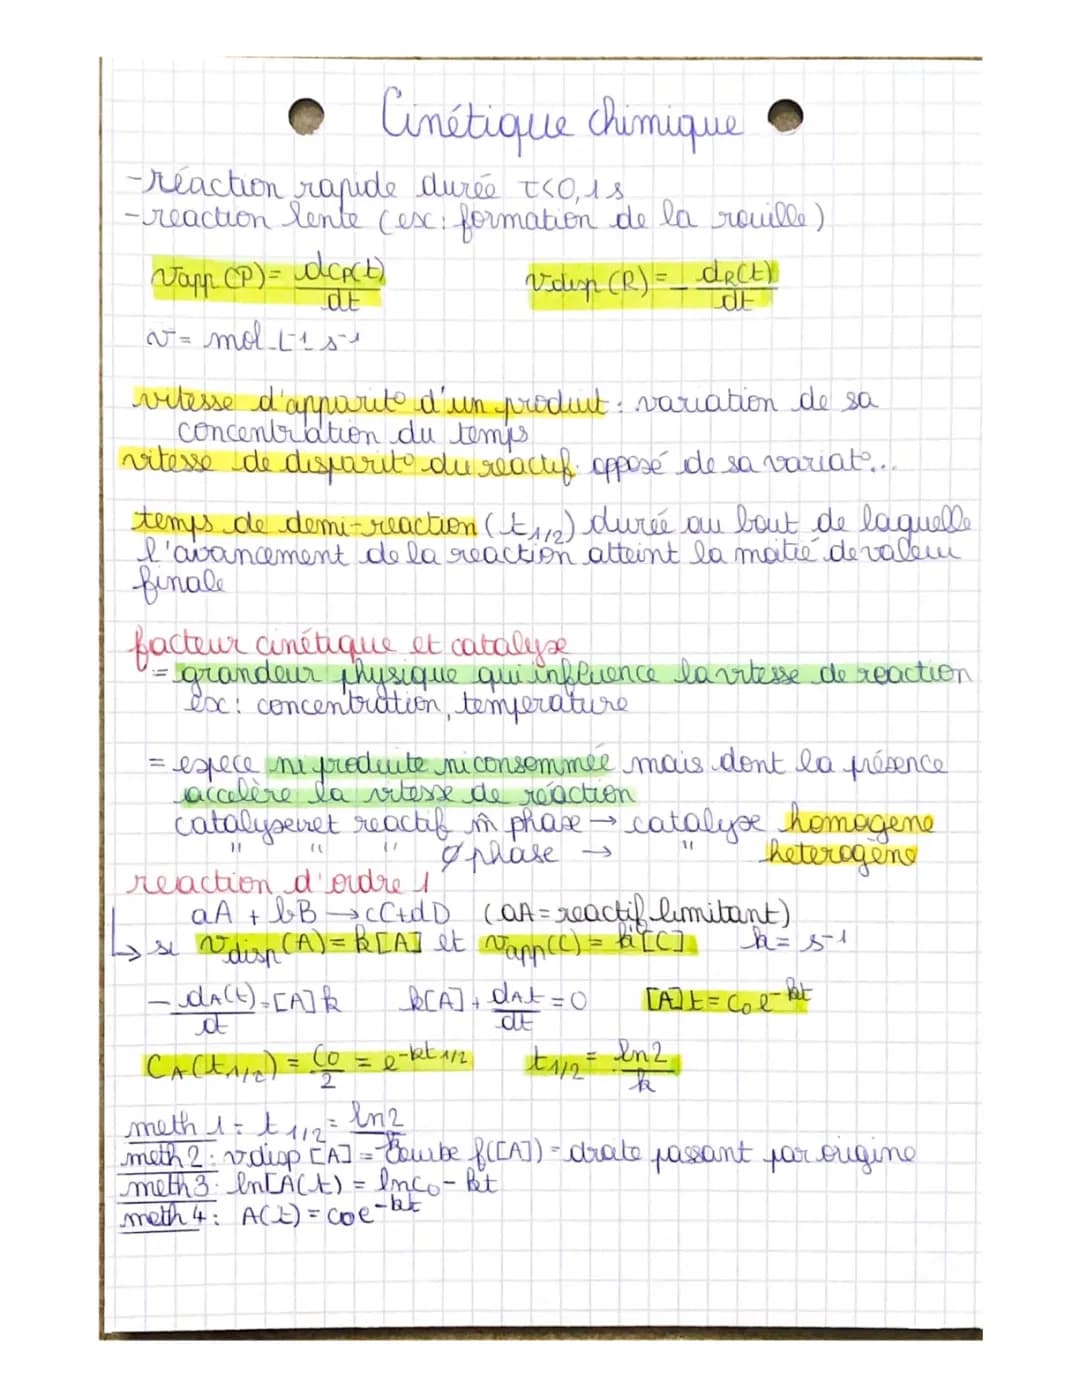 Cinétique chimique
-réaction rapide durée τ<0,1 s
-reaction lente (ex: formation de la rouille)
Vapp (P)= dcp(t)/dt Vdisp (R) = - dR(t)/dt
v = mol L-1 s-1
vitesse d'apparit° d'un produit : variation de sa
concentration du temps
vitesse de disparit° du reactif: opposé de sa variat°...
temps de demi-reaction (t1/2) durée au bout de laquelle
l'avancement de la reaction atteint la moitié de valeur
finale
facteur cinétique et catalyse
= grandeur physique qui influence la vitesse de reaction
ex: concentration, temperature
= espece ni produite ni consommée mais dont la présence
accelère la vitesse de réaction
catalyseur et reactif m̂ phase → catalyse homogene
" " " ≠ phase → " heterogène
reaction d'ordre 1
aA + bB → cC+dD (aA = reactif limitant)
↳ si Vdisp (A) = k[A] et Vapp(C) = k[C] k = s-1
- dA(t)/dt = [A]k k[A] + dAt/dt = 0 [A]t = C0 e-kt
CA(t1/2) = C0/2 = e-kt 1/2 t1/2 = ln2/k
meth 1 = t 1/2 = ln2/k
meth 2 : vdisp [A] = courbe f([A]) = droite passant par origine
meth 3: ln[A(t) = lnC0 - kt
meth 4 : A(t) = C0e-kt